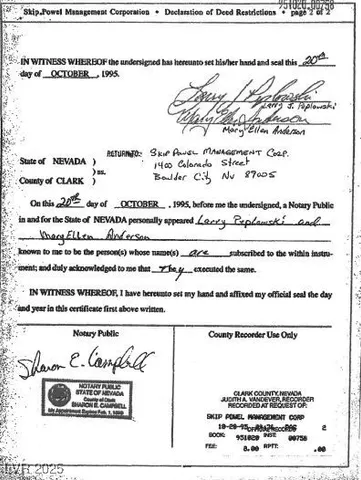 Skip.Powel Management Corporation • Declaration of Deed Restrictions • page 2 of 2
951020.00758
IN WITNESS WHEREOF the undersigned has hereunto set his/her hand and seal this 20th
day of OCTOBER , 1995.
Larry J. Peplowski
Larry J. Peplowski
Mary Ellen Anderson
Mary Ellen Anderson
RETURN TO: SKIP POWEL MANAGEMENT CORP.
State of NEVADA ) 1400 Colorado Street
) ss. Boulder City NV 89005
County of CLARK )
On this 20th day of OCTOBER , 1995, before me the undersigned, a Notary Public
in and for the State of NEVADA personally appeared Larry Peplowski and
MaryEllen Anderson
known to me to be the person(s) whose name(s) are subscribed to the within instru-
ment; and duly acknowledged to me that they executed the same.
IN WITNESS WHEREOF, I have hereunto set my hand and affixed my official seal the day
and year in this certificate first above written.
Notary Public
County Recorder Use Only
Sharon E. Campbell
NOTARY PUBLIC
STATE OF NEVADA
County of Clark
SHARON E. CAMPBELL
My Appointment Expires Feb. 1,
CLARK COUNTY, NEVADA
JUDITH A. VANDEVER, RECORDER
RECORDED AT REQUEST OF:
SKIP POWEL MANAGEMENT CORP
10-20-95 2
OFFICIAL RECORDS
BOOK: 951020 INST: 00758
FEE: 8.00 RPTT: .00
LVR 2025